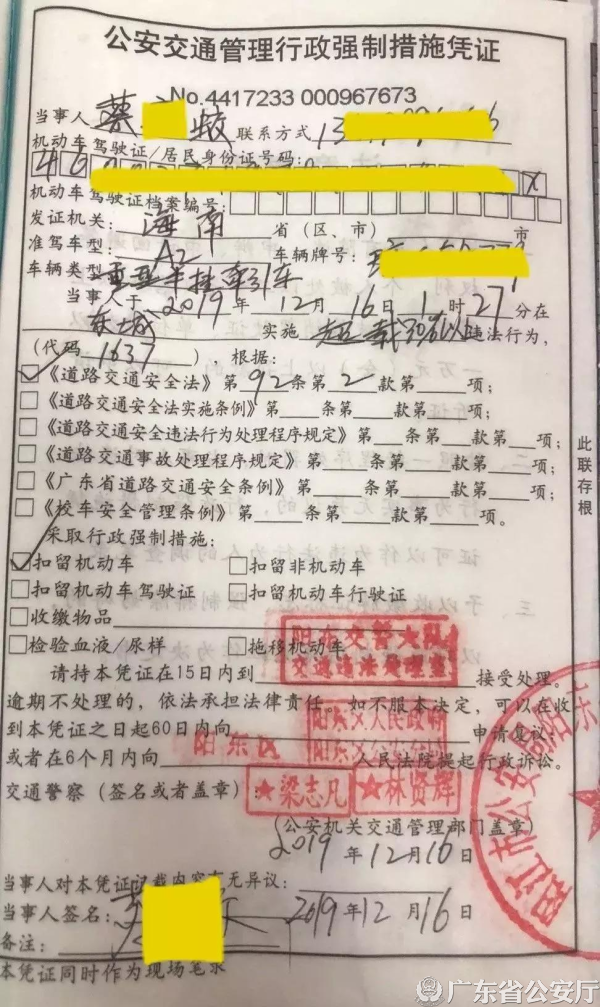 公安交通管理行政强制措施凭证
No.4417233 000967673
当事人 蔡 蛟 联系方式 13
机动车驾驶证/居民身份证号码:
46 X
机动车驾驶证档案编号:
发证机关: 海南 省(区、市) 市
准驾车型: A2 车辆牌号:
车辆类型 重型半挂牵引车
当事人于 2019 年 12 月 16 日 1 时 27 分在
东城 实施 超载30%以 违法行为,
(代码 1637 ),根据:
☑《道路交通安全法》第 92 条第 2 款第 项;
□《道路交通安全法实施条例》第 条第 款第 项;
□《道路交通安全违法行为处理程序规定》第 条第 款第 项;
□《道路交通事故处理程序规定》第 条第 款第 项;
□《广东省道路交通安全条例》第 条第 款第 项;
□《校车安全管理条例》第 条第 款第 项。
采取行政强制措施:
☑扣留机动车 □扣留非机动车
□扣留机动车驾驶证 □扣留机动车行驶证
□收缴物品
□检验血液/尿样 □拖移机动车
阳东交警大队
交通违法处理室
请持本凭证在15日内到 接受处理。
逾期不处理的,依法承担法律责任。如不服本决定,可以在收
到本凭证之日起60日内向 申请复议;
阳东区
或者在6个月内向 人民法院提起行政诉讼。
交通警察(签名或者盖章): ★梁志凡 ★林贤辉
(公安机关交通管理部门盖章)
2019 年 12 月 16 日
当事人对本凭证记载内容有无异议:
当事人签名: 2019 年 12 月 16 日
备注:
本凭证同时作为现场笔录
此联存根
阳江市公安局阳东
广东省公安厅